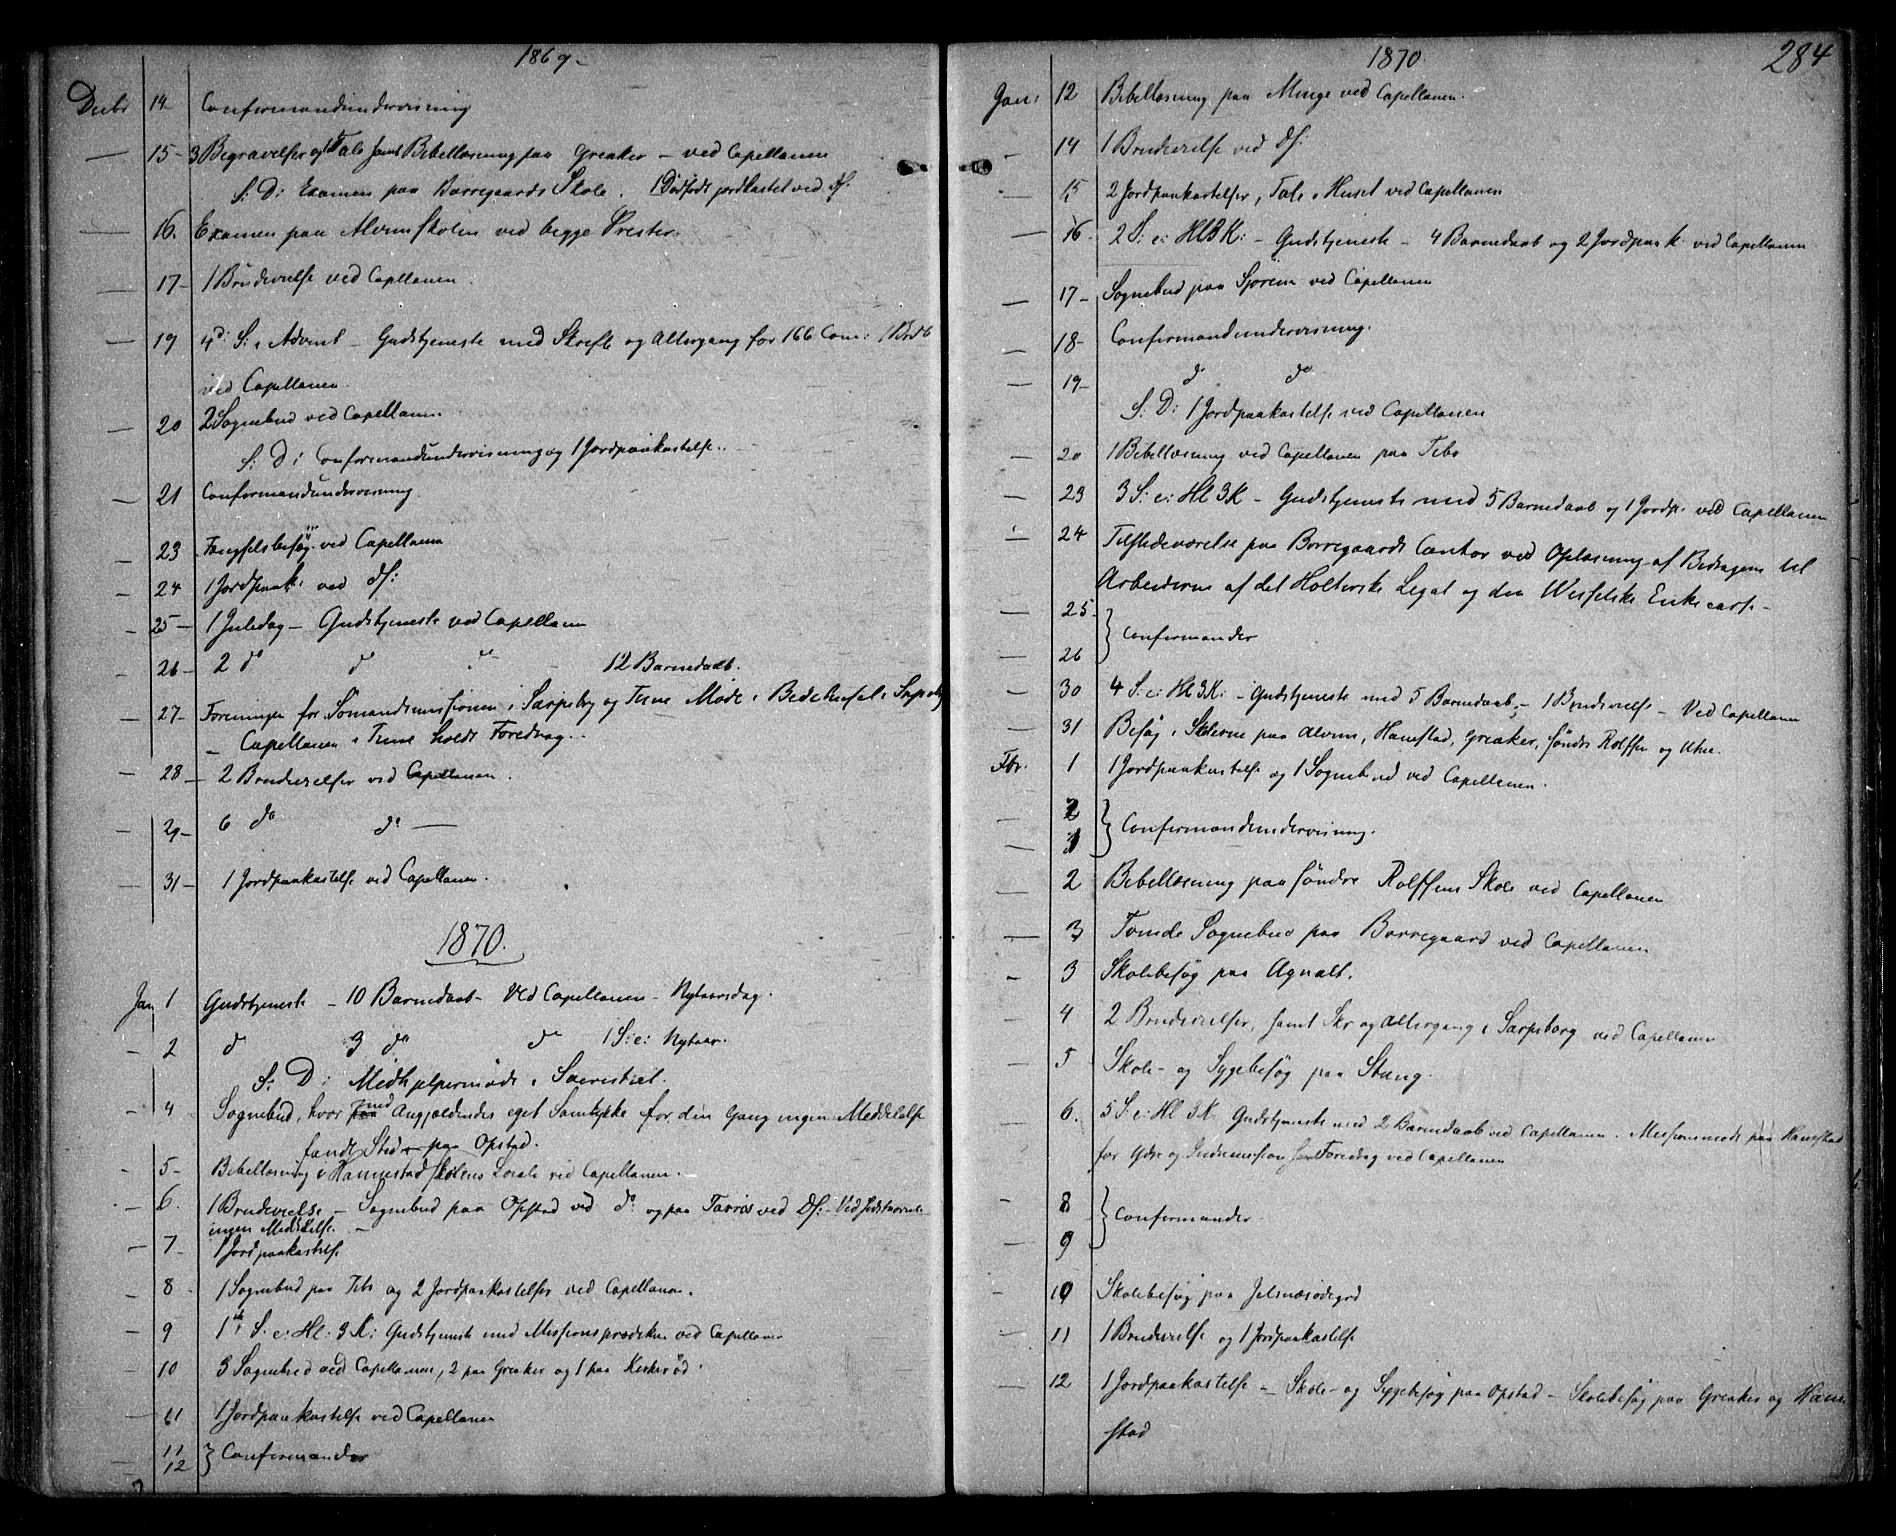 1869
Decbr 14 Confirmandundervisning
15 - 3 Begravelser og 1 Tale samt Bibellæsning paa Greaker - ved Capellanen
S: D: Examen paa Borregaards Skole. 1 Dødfødt jordkastet ved Ds:
16. Examen paa Alvimskolen ved begge Prester.
17 - 1 Brudevielse ved Capellanen.
19 4d: S: i Advent - Gudstjeneste med Skrift og Altergang for 166 Com: 1 Brdb
ved Capellanen.
20 2 Sognebud ved Capellanen
S: D: Confirmandundervisning og 1 Jordpaakastelse.
21 Confirmandundervisning
23 Fængselsbesøg ved Capellanen
24 1 Jordpaak: ved Ds:
25 - 1 Juledag - Gudstjeneste ved Capellanen
26 - 2 do do do 12 Barnedaab.
27 - Foreningen for Sømandsmissionen i Sarpsborg og Tune Møde i Bedehuset i Sarpsborg
- Capellanen i Tune holdt Foredrag.
28 - 2 Brudevielser ved Capellanen.
29 - 6 do do -
31 - 1 Jordpaakastelse ved Capellanen.
1870.
Jan 1 Gudstjeneste - 10 Barnedaab - Ved Capellanen - Nytaarsdag.
2 do 3 do do 1 S: e: Nytaar.
S: D: Medhjelpermøde i Sacristiet.
4 Sognebud, hvor med Angjældendes eget Samtykke for den Gang ingen Meddelelse
fandt Sted - paa Opstad.
5 - Bibellæsning i Hannestad Skoles Locale ved Capellanen.
6. 1 Brudevielse - Sognebud paa Opstad ved do og paa ved Ds: - Ved
ingen Meddelelse. -
7 - 1 Jordpaakastelse
8 1 Sognebud paa Tibo og 2 Jordpaakastelser ved Capellanen.
9 1ste S: e: Hl: 3 K: Gudstjeneste med Missionsprædiken ved Capellanen
10 3 Sognebud ved Capellanen, 2 paa Greaker og 1 paa
11 1 Jordpaakastelse ved Capellanen
11
12 } Confirmander
1870. 284
Jan: 12 Bibellæsning paa Minge ved Capellanen.
14 1 Brudevielse ved Ds:
15 2 Jordpaakastelser, Tale i Huset ved Capellanen
16 - 2 S: e: Hl 3 K: - Gudstjeneste - 4 Barnedaab og 2 Jordpaak: ved Capellanen
17 - Sognebud paa ved Capellanen
18 - Confirmandundervisning.
19 - do do
S: D: 1 Jordpaakastelse ved Capellanen
20 1 Bibellæsning ved Capellanen paa Tibo
23 3 S: e: Hl 3 K - Gudstjeneste med 5 Barnedaab og 1 Jordp: ved Capellanen
24 Tilstedeværelse paa Borregaards Contor ved Oplæsning af Bidragene til
Arbeiderne af det Holterske Legat og den Wesselske Enkecasse -
25
26 } Confirmander
30 4 S: e: Hl 3 K: - Gudstjeneste med 5 Barnedaab, - 1 Brudevielse - Ved Capellanen
31 Besøg i Skolerne paa Alvim, Hanestad, Greaker, Søndre Rolfsøen og Utne.
Fbr. 1 1 Jordpaakastelse og 1 Sognebud ved Capellanen.
2
3 } Confirmandundervisning.
2 Bibellæsning paa Søndre Rolfsøens Skole ved Capellanen
3 Sognebud paa Borregaard ved Capellanen
3 Skolebesøg paa Agnalt.
4 2 Brudevielser, samt Skr og Altergang i Sarpsborg ved Capellanen
5 Skole- og Sygebesøg paa Stang.
6. 5 S: e: Hl 3 K. Gudstjeneste med 2 Barnedaab ved Capellanen. Missionsmøde paa Hanestad
for Ydre og Indremission samt Foredrag ved Capellanen
8
9 } Confirmander.
10 Skolebesøg paa Jelsnesødegrd
11 1 Brudevielse og 1 Jordpaakastelse
12 1 Jordpaakastelse - Skole- og Sygebesøg paa Opstad - Skolebesøg paa Greaker og Hane
stad